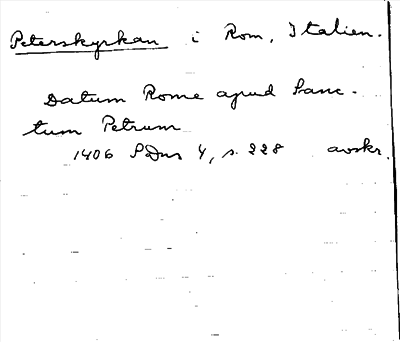 Peterskyrkan i Rom, Italien.
Datum Rome apud Sanc-
tum Petrum
1406 SDns 4, s. 228 avskr.